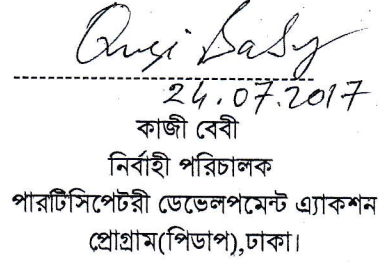 Quzi Baby
24.07.2017
কাজী বেবী
নির্বাহী পরিচালক
পারটিসিপেটরী ডেভেলপমেন্ট এ্যাকশন
প্রোগ্রাম(পিডাপ),ঢাকা।